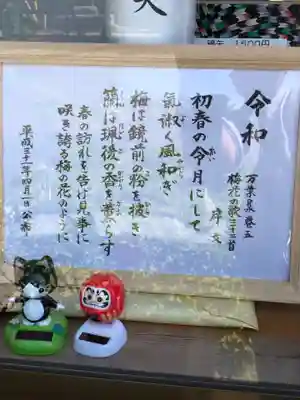 1,500円
令和
万葉集巻五
梅花の歌三十二首
序文
初春の令月にして
氣淑く風和ぎ
梅は鏡前の粉を披き
蘭は珮後の香を薫らす
春の訪れを告げ見事に
咲き誇る梅の花のように
平成三十一年四月一日公布